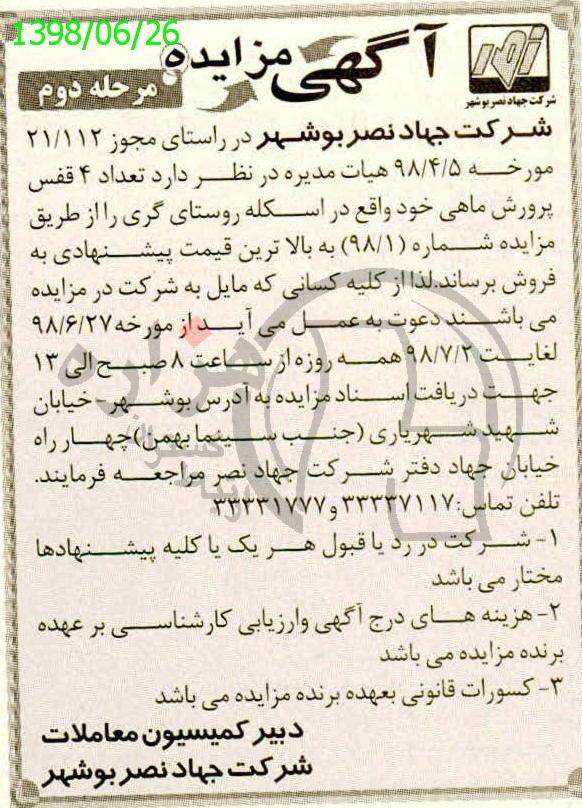 1398/06/26
آگهی مزایده
مرحله دوم
شرکت جهاد نصر بوشهر
شرکت جهاد نصر بوشهر در راستای مجوز ۲۱/۱۱۲
مورخه ۹۸/۴/۵ هیات مدیره در نظر دارد تعداد ۴ قفس
پرورش ماهی خود واقع در اسکله روستای گری را از طریق
مزایده شماره (۹۸/۱) به بالا ترین قیمت پیشنهادی به
فروش برساند.لذا از کلیه کسانی که مایل به شرکت در مزایده
می باشند دعوت به عمل می آید از مورخه ۹۸/۶/۲۷
لغایت ۹۸/۷/۲ همه روزه از ساعت ۸ صبح الی ۱۳
جهت دریافت اسناد مزایده به آدرس بوشهر-خیابان
شهید شهریاری (جنب سینما بهمن) چهار راه
خیابان جهاد دفتر شرکت جهاد نصر مراجعه فرمایند.
تلفن تماس:۳۳۳۳۷۱۱۷ و ۳۳۳۳۱۷۷۷
۱- شرکت در رد یا قبول هر یک یا کلیه پیشنهادها
مختار می باشد
۲- هزینه های درج آگهی وارزیابی کارشناسی بر عهده
برنده مزایده می باشد
۳- کسورات قانونی بعهده برنده مزایده می باشد
دبیر کمیسیون معاملات
شرکت جهاد نصر بوشهر
هزاره